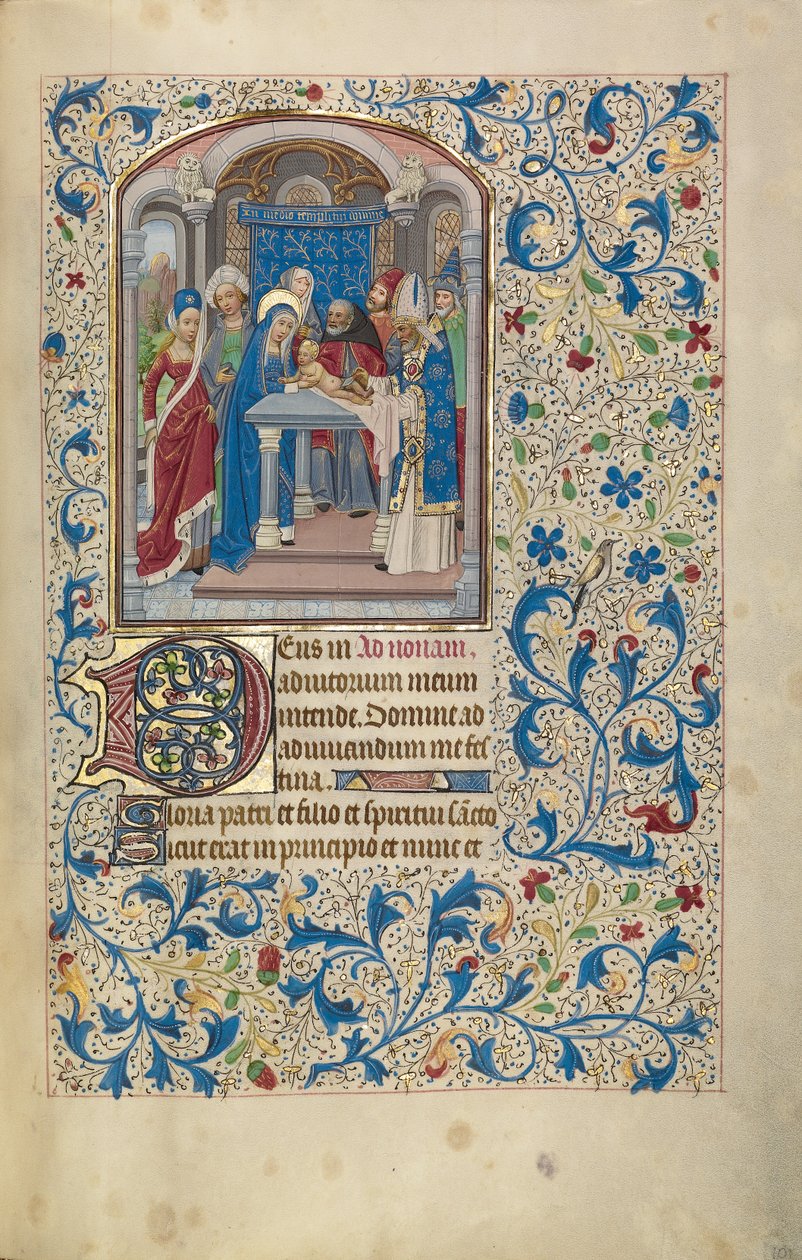 In medio templi tui domine
Deus in Ad nonam.
adiutorium meum
intende. Domine ad
adiuuandum me fes
tina.
Gloria patri et filio et spiritui sācto
Sicut erat in principio et nunc et